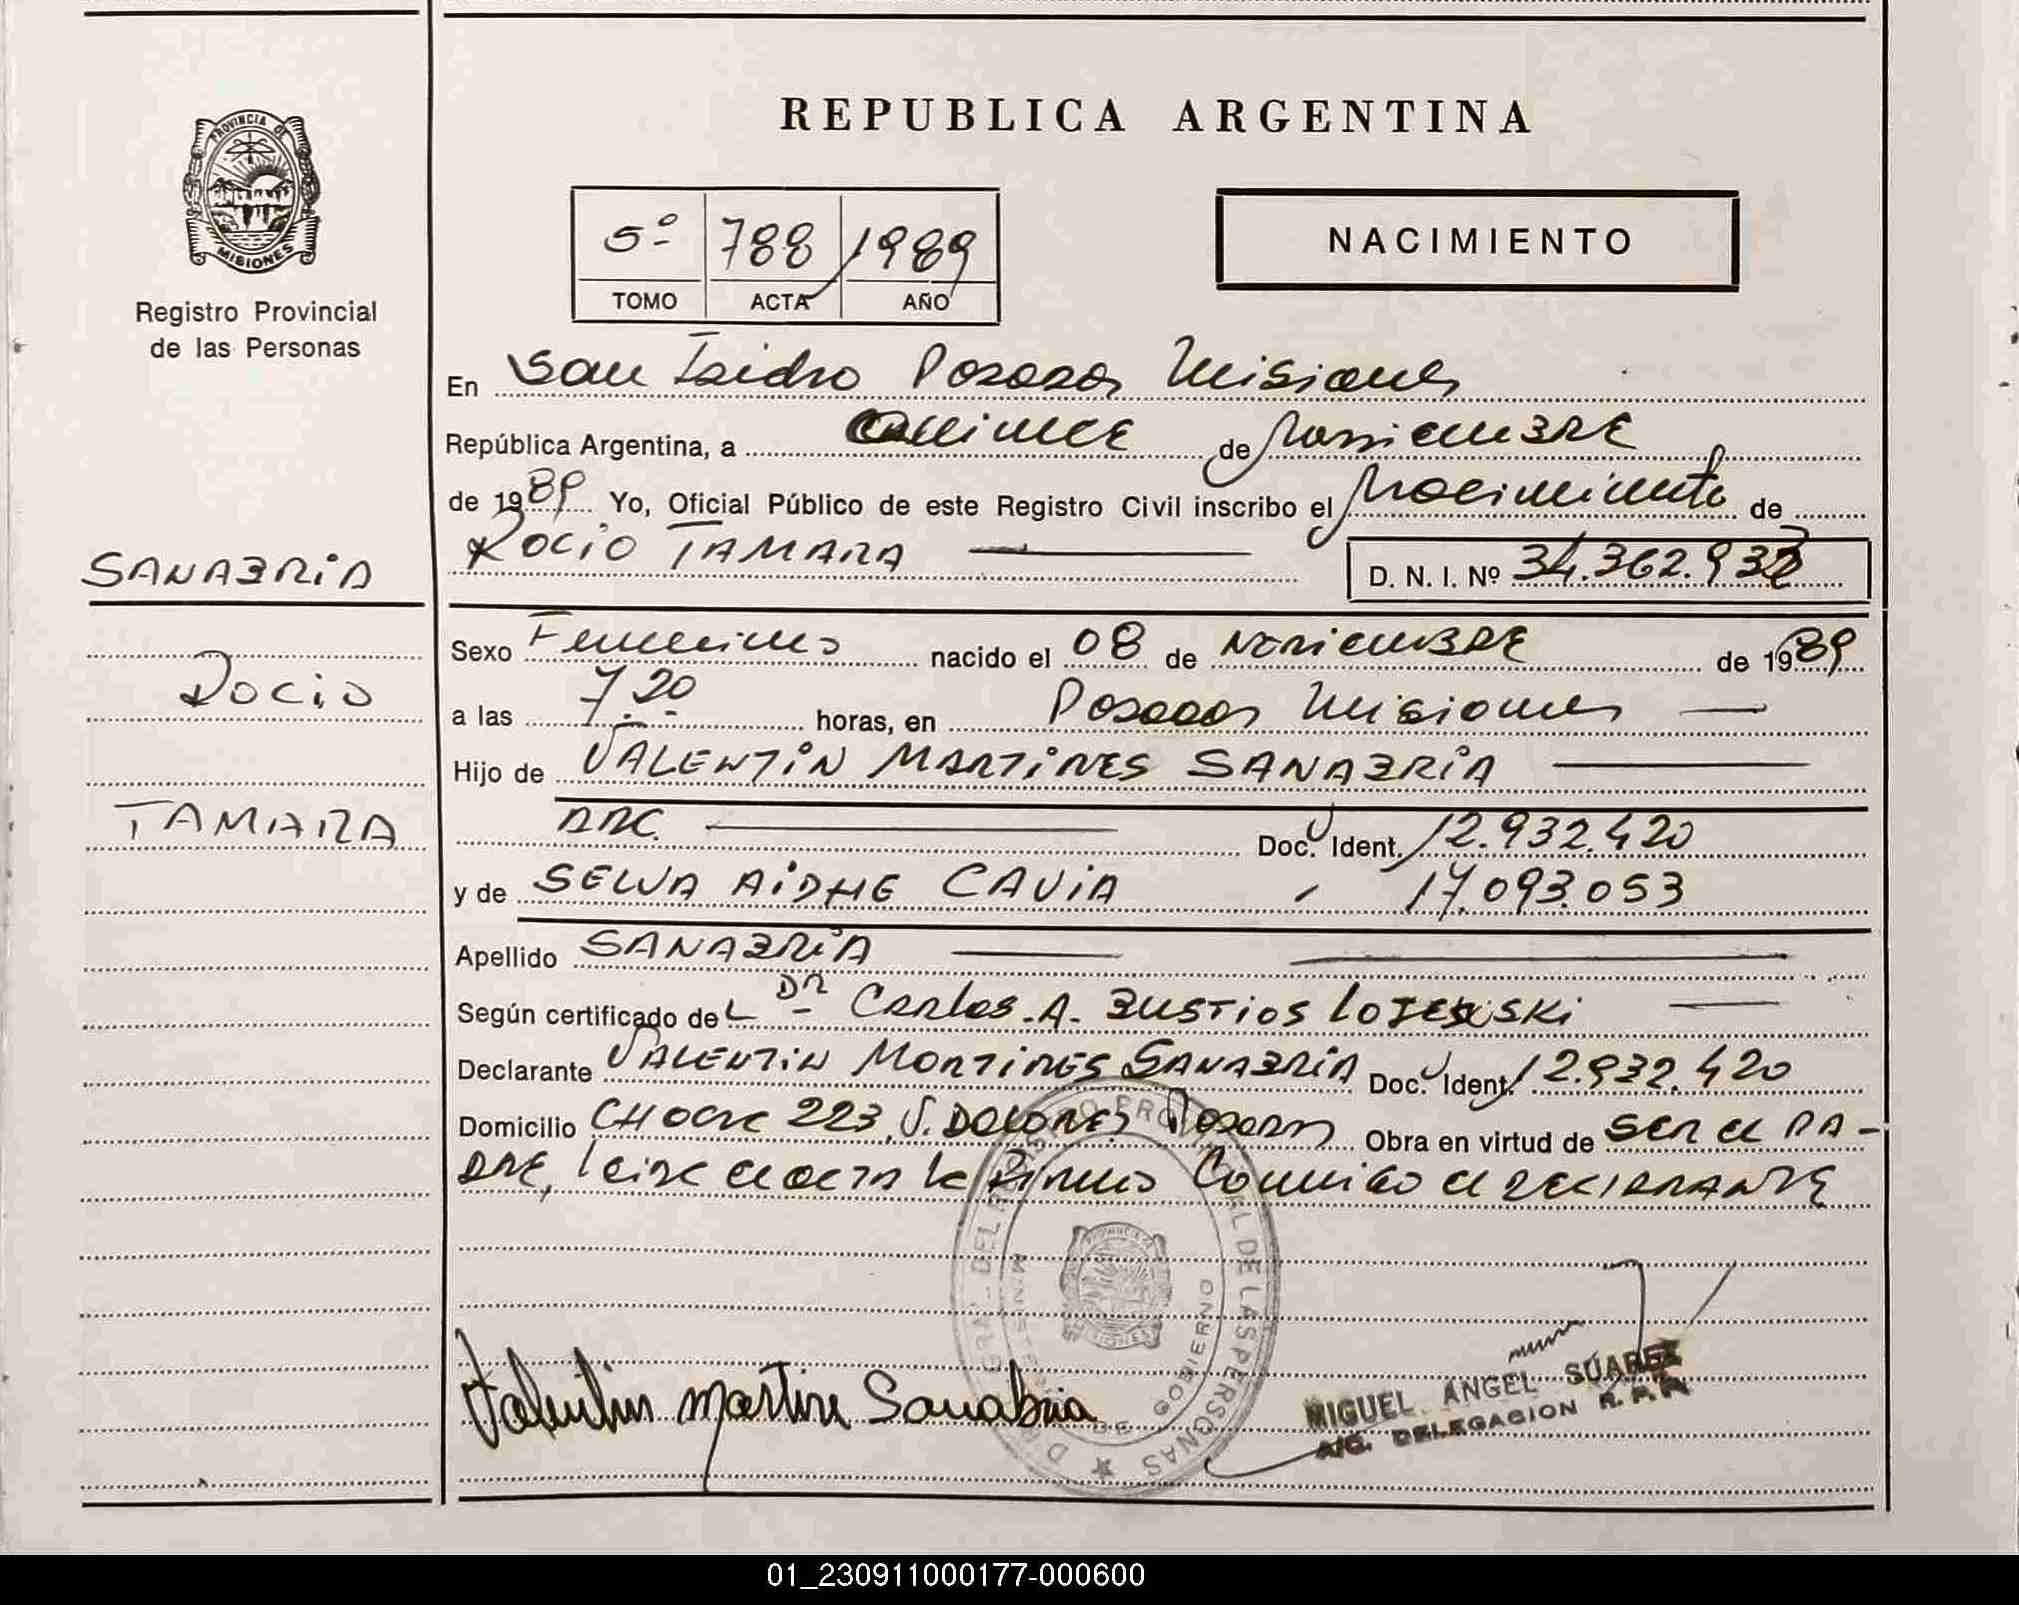 REPUBLICA ARGENTINA
PROVINCIA DE
MISIONES
Registro Provincial
de las Personas
5º 788 1989
TOMO ACTA AÑO
NACIMIENTO
En San Isidro Posadas Misiones
República Argentina, a Quince de Noviembre
de 1989 Yo, Oficial Público de este Registro Civil inscribo el Nacimiento de
ROCIO TAMARA
D. N. I. Nº 34.362.932
SANABRIA
ROCIO
TAMARA
Sexo Femenino nacido el 08 de NOVIEMBRE de 1989
a las 7 20 horas, en Posadas Misiones
Hijo de VALENTIN MARTINES SANABRIA
ARC. Doc. Ident. 12.932.420
y de SELVA AIDHE CAVIA 17.093.053
Apellido SANABRIA
Según certificado del DR Carlos A. BUSTIOS
Declarante VALENTIN MARTINES SANABRIA Doc. Ident. 12.932.420
Domicilio CHACRA 223, V. DOLORES Posadas Obra en virtud de SER EL PA-
DRE, leida el acta la firma Conmigo el DECLARANTE
Valentin martine Sanabria
MIGUEL ANGEL SUAREZ
A/C. DELEGACION R.P.P.
DEL REGISTRO PROVINCIAL DE LAS PERSONAS
MINISTERIO DE GOBIERNO
01_230911000177-000600